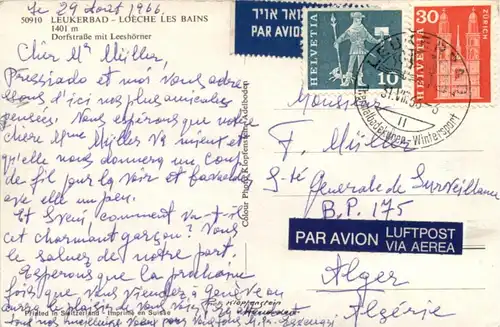 le 29 août 1966.
50910 LEUKERBAD - LOÈCHE LES BAINS
1401 m
Dorfstraße mit Leeshörner
Cher Mr Müller,
et moi vous
d'ici nos plus amicales
pensées. Nous espérons que votre
chère Mme Müller va mieux et
qu'elle nous donnera un coup
de fil pour la voir et
avec elle un peu.
Et comment va-t-il
cet charmant garçon? Vous
le saluez de notre part.
Espérons que la prochaine
fois que vous viendrez à Genève on
aura le plaisir de vous
Printed in Switzerland - Imprimé en Suisse
Colour Photo Klopfenstein, Adelboden
Klopfenstein
Adelboden
PAR AVION
HELVETIA
10
HELVETIA
30
ZÜRICH
LEUKERBAD
Wintersport
Monsieur
F. Müller
S-té Générale de Surveillance
B.P. 175
PAR AVION
LUFTPOST
VIA AEREA
Alger
Algérie